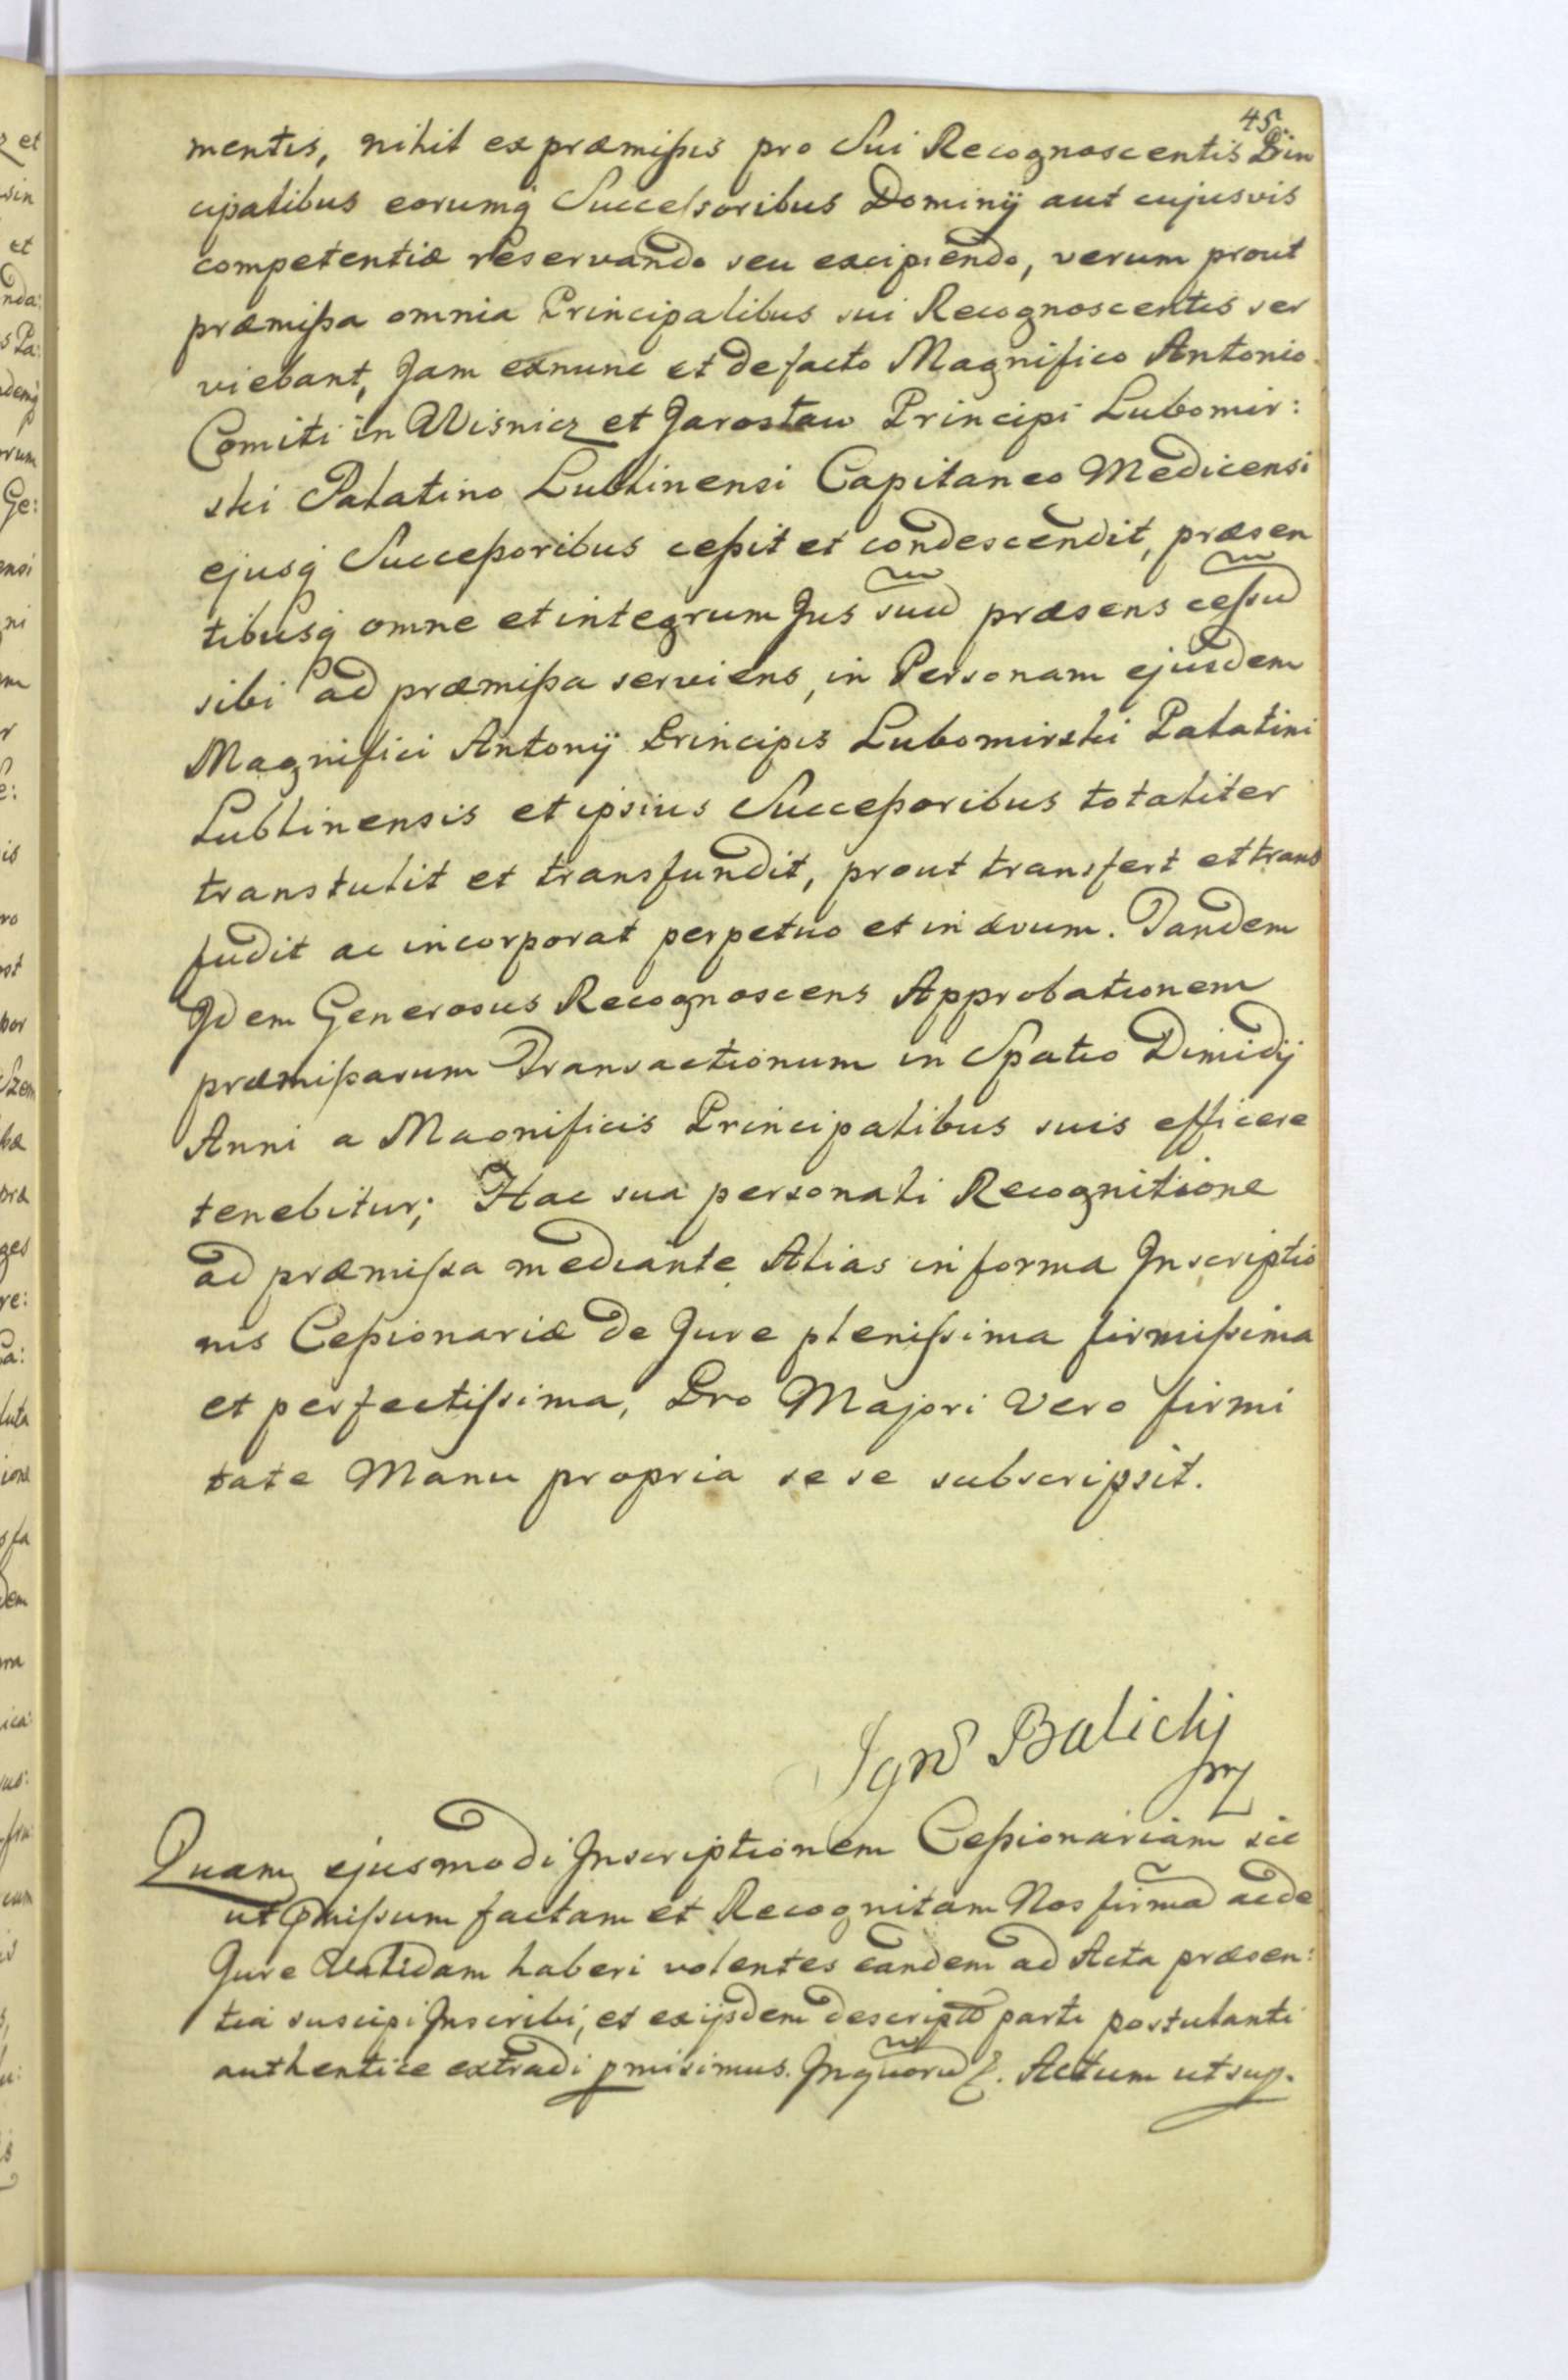 45
mentis, nihil ex præmissis pro Sui Recognoscentis Prin
cipalibus eorumq Successoribus Dominij aut cujusvis
competentiæ reservando seu excipiendo, verum prout
præmissa omnia Principalibus sui Recognoscentis ser
viebant, Jam exnunc et de facto Magnifico Antonio
Comiti in Wisnicz et Jarosław Principi Lubomir:
ski Palatino Lublinensi Capitaneo Medicensi
ejusq Successoribus cessit et condescendit, præsen
tibusq omne et integrum Jus suū præsens cessū
sibi ad præmissa serviens, in Personam ejusdem
Magnifici Antonij Principis Lubomirski Palatini
Lublinensis et ipsius Successoribus totaliter
transtulit et transfundit, prout transfert et trans
fudit ac incorporat perpetuo et in ævum. Tandem
Idem Generosus Recognoscens Approbationem
præmissarum Transactionum in Spatio Dimidij
Anni a Magnificis Principalibus suis efficere
tenebitur; Hac sua personali Recognitione
ad præmissa mediante Alias in forma Inscriptio
nis Cessionariæ de Jure plenissima firmissima
et perfectissima, Pro Majori vero firmi
tate Manu propria sese subscripsit.
Ignͫ Balicki
mp
Quam ejusmodi Inscriptionem Cessionariam sic
ut pmissum factam et Recognitam Nos firmā ac de
Jure Validam haberi volentes eandem ad Acta præsen:
tia suscipi Inscribi, et ex ijsdem descriptā parti postulanti
authentice extradi pmisimus. In quorū &. Actum ut sup.